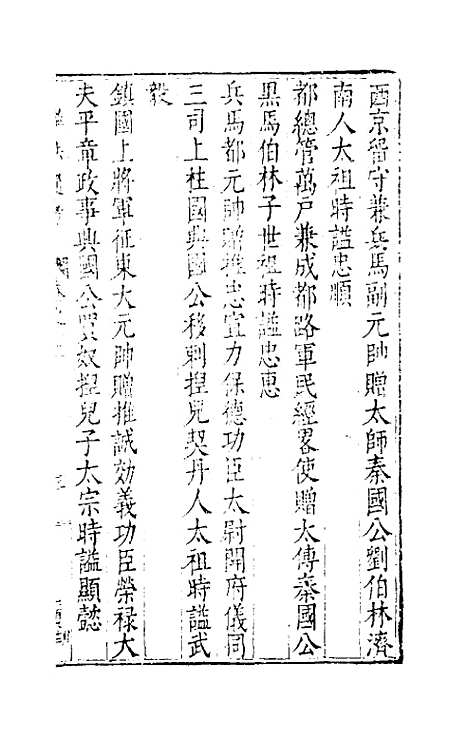 西京留守兼兵馬副元帥贈太師秦國公劉伯林濟
南人太祖時謚忠順
都總管萬戶兼成都路軍民經畧使贈太傅秦國公
黑馬伯林子世祖時謚忠惠
兵馬都元帥贈推忠宣力保德功臣太尉開府儀同
三司上柱國興國公移剌捏兒契丹人太祖時謚武
毅
鎮國上將軍征東大元帥贈推誠効義功臣榮禄大
夫平章政事興國公買奴捏兒子太宗時謚顯懿